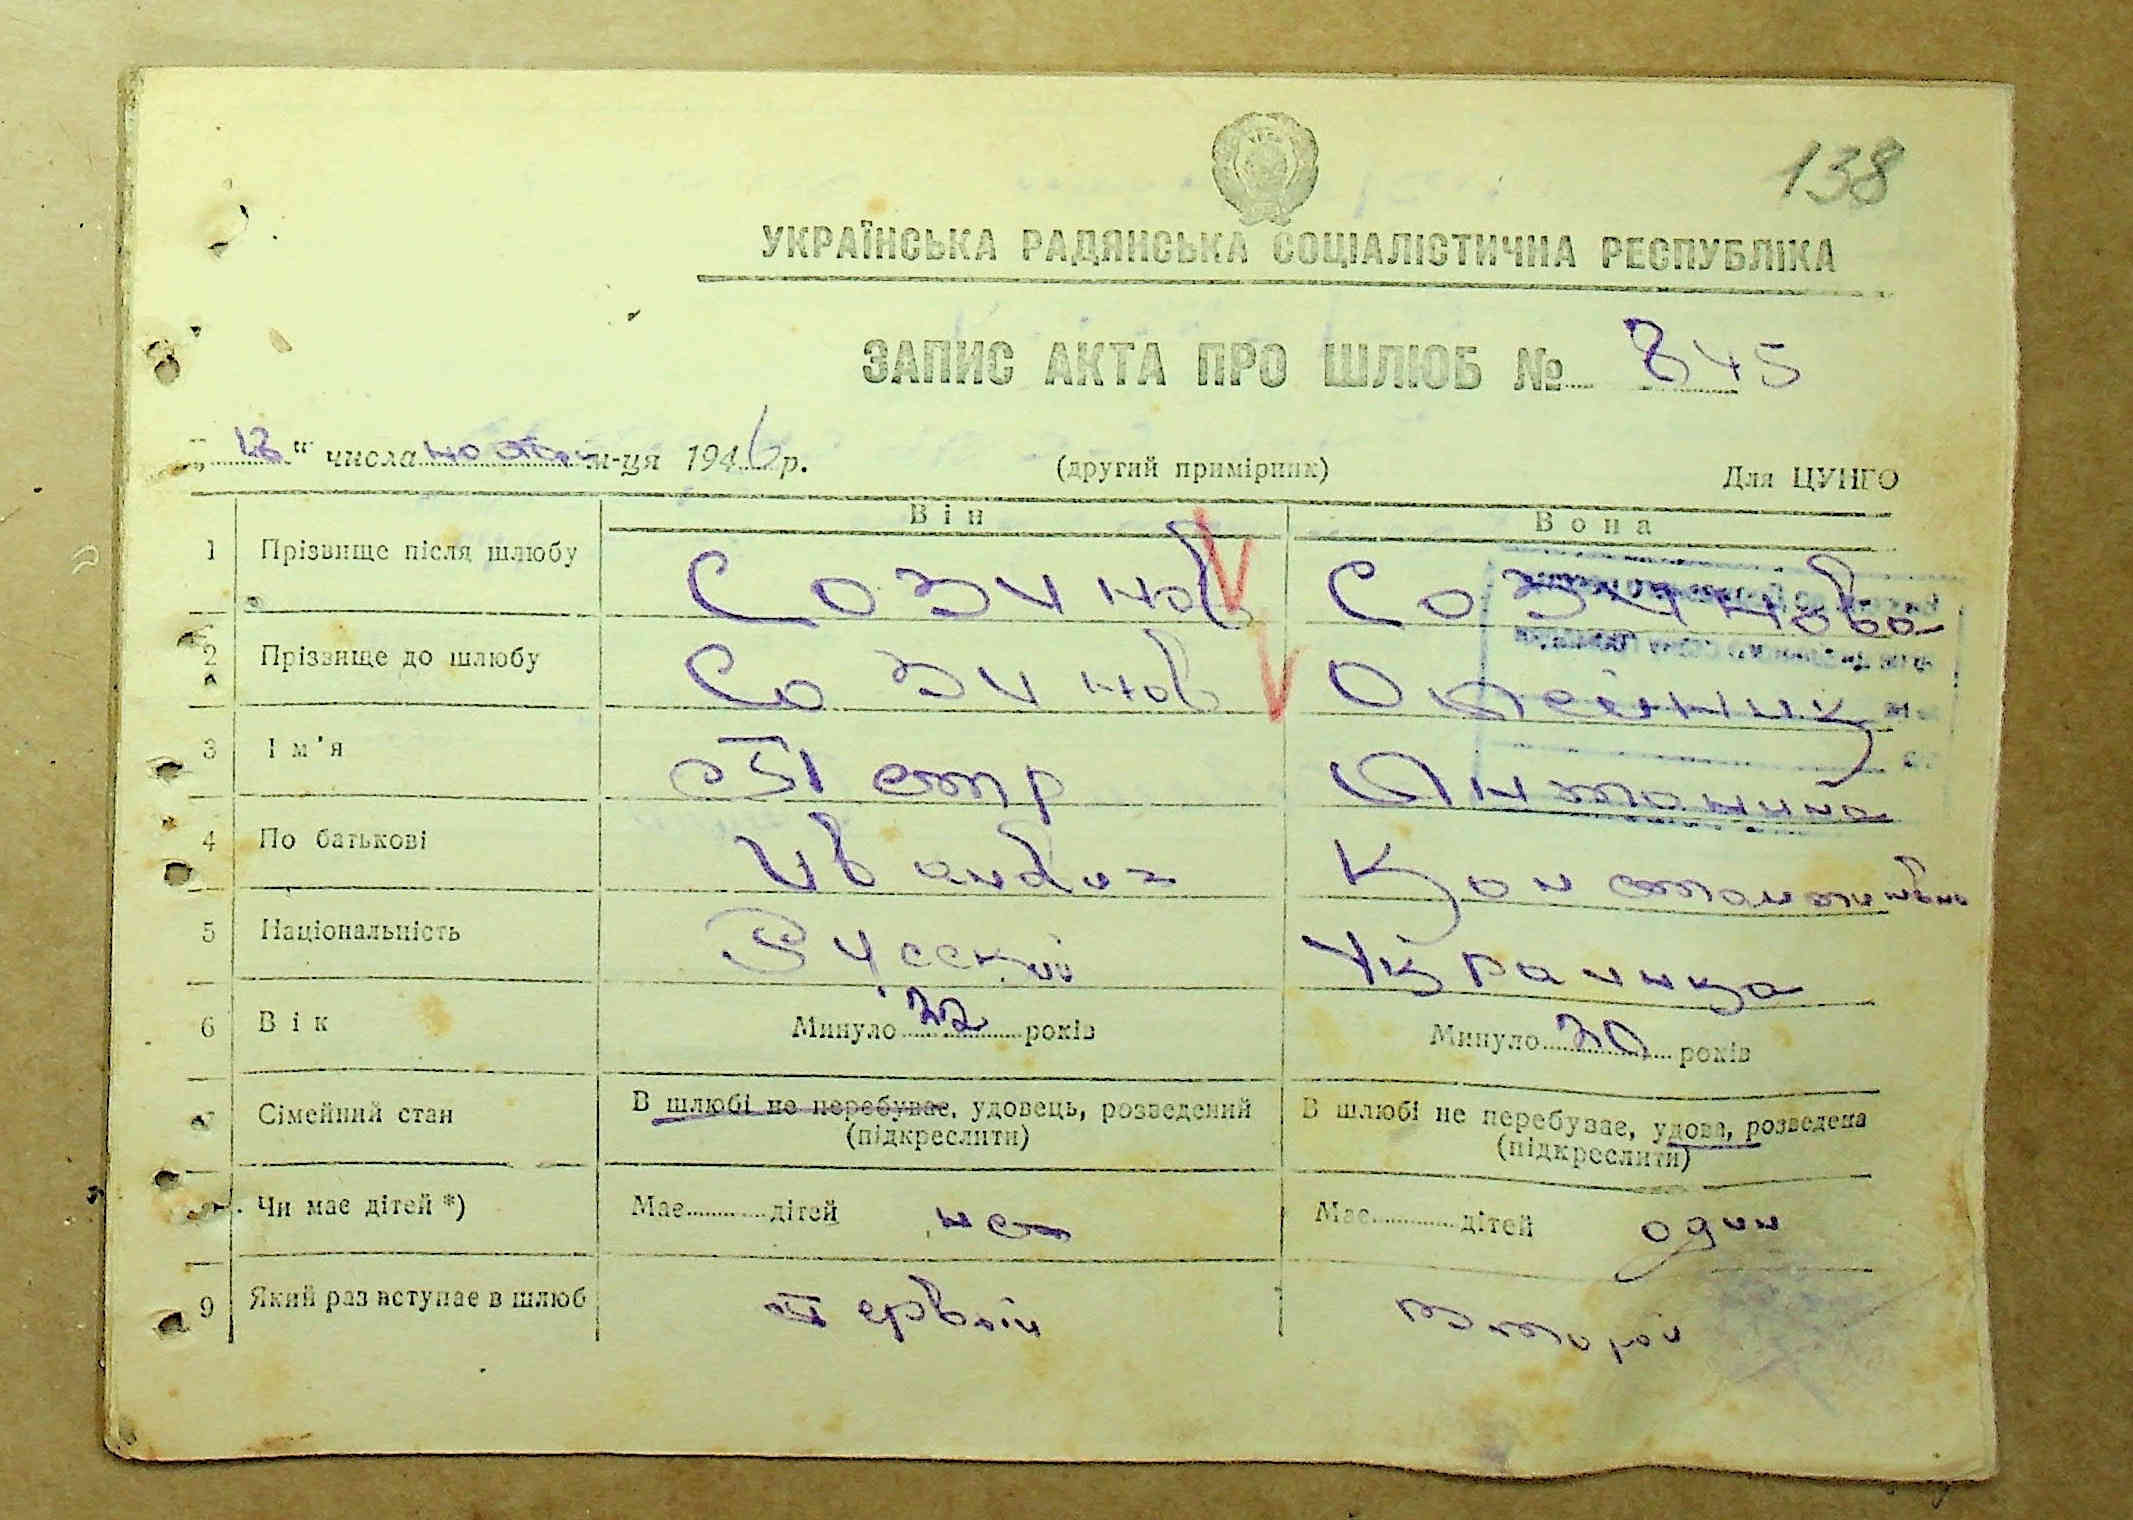 138
УКРАЇНСЬКА РАДЯНСЬКА СОЦІАЛІСТИЧНА РЕСПУБЛІКА
ЗАПИС АКТА ПРО ШЛЮБ № 845
„ 12 “ числа ноября м-ця 1946 р. (другий примірник) Для ЦУНГО
Він Вона
1 Прізвище після шлюбу Созинов Созинова
2 Прізвище до шлюбу Созинов Олейник
3 Ім'я Петр Антонина
4 По батькові Иванович Константиновна
5 Національність Русский Украинка
6 Вік Минуло 32 років Минуло 30 років
7 Сімейний стан В шлюбі не перебуває, удовець, розведений В шлюбі не перебуває, удова, розведена
(підкреслити) (підкреслити)
8 Чи має дітей *) Має дітей нет Має дітей один
9 Який раз вступає в шлюб Первый Второй